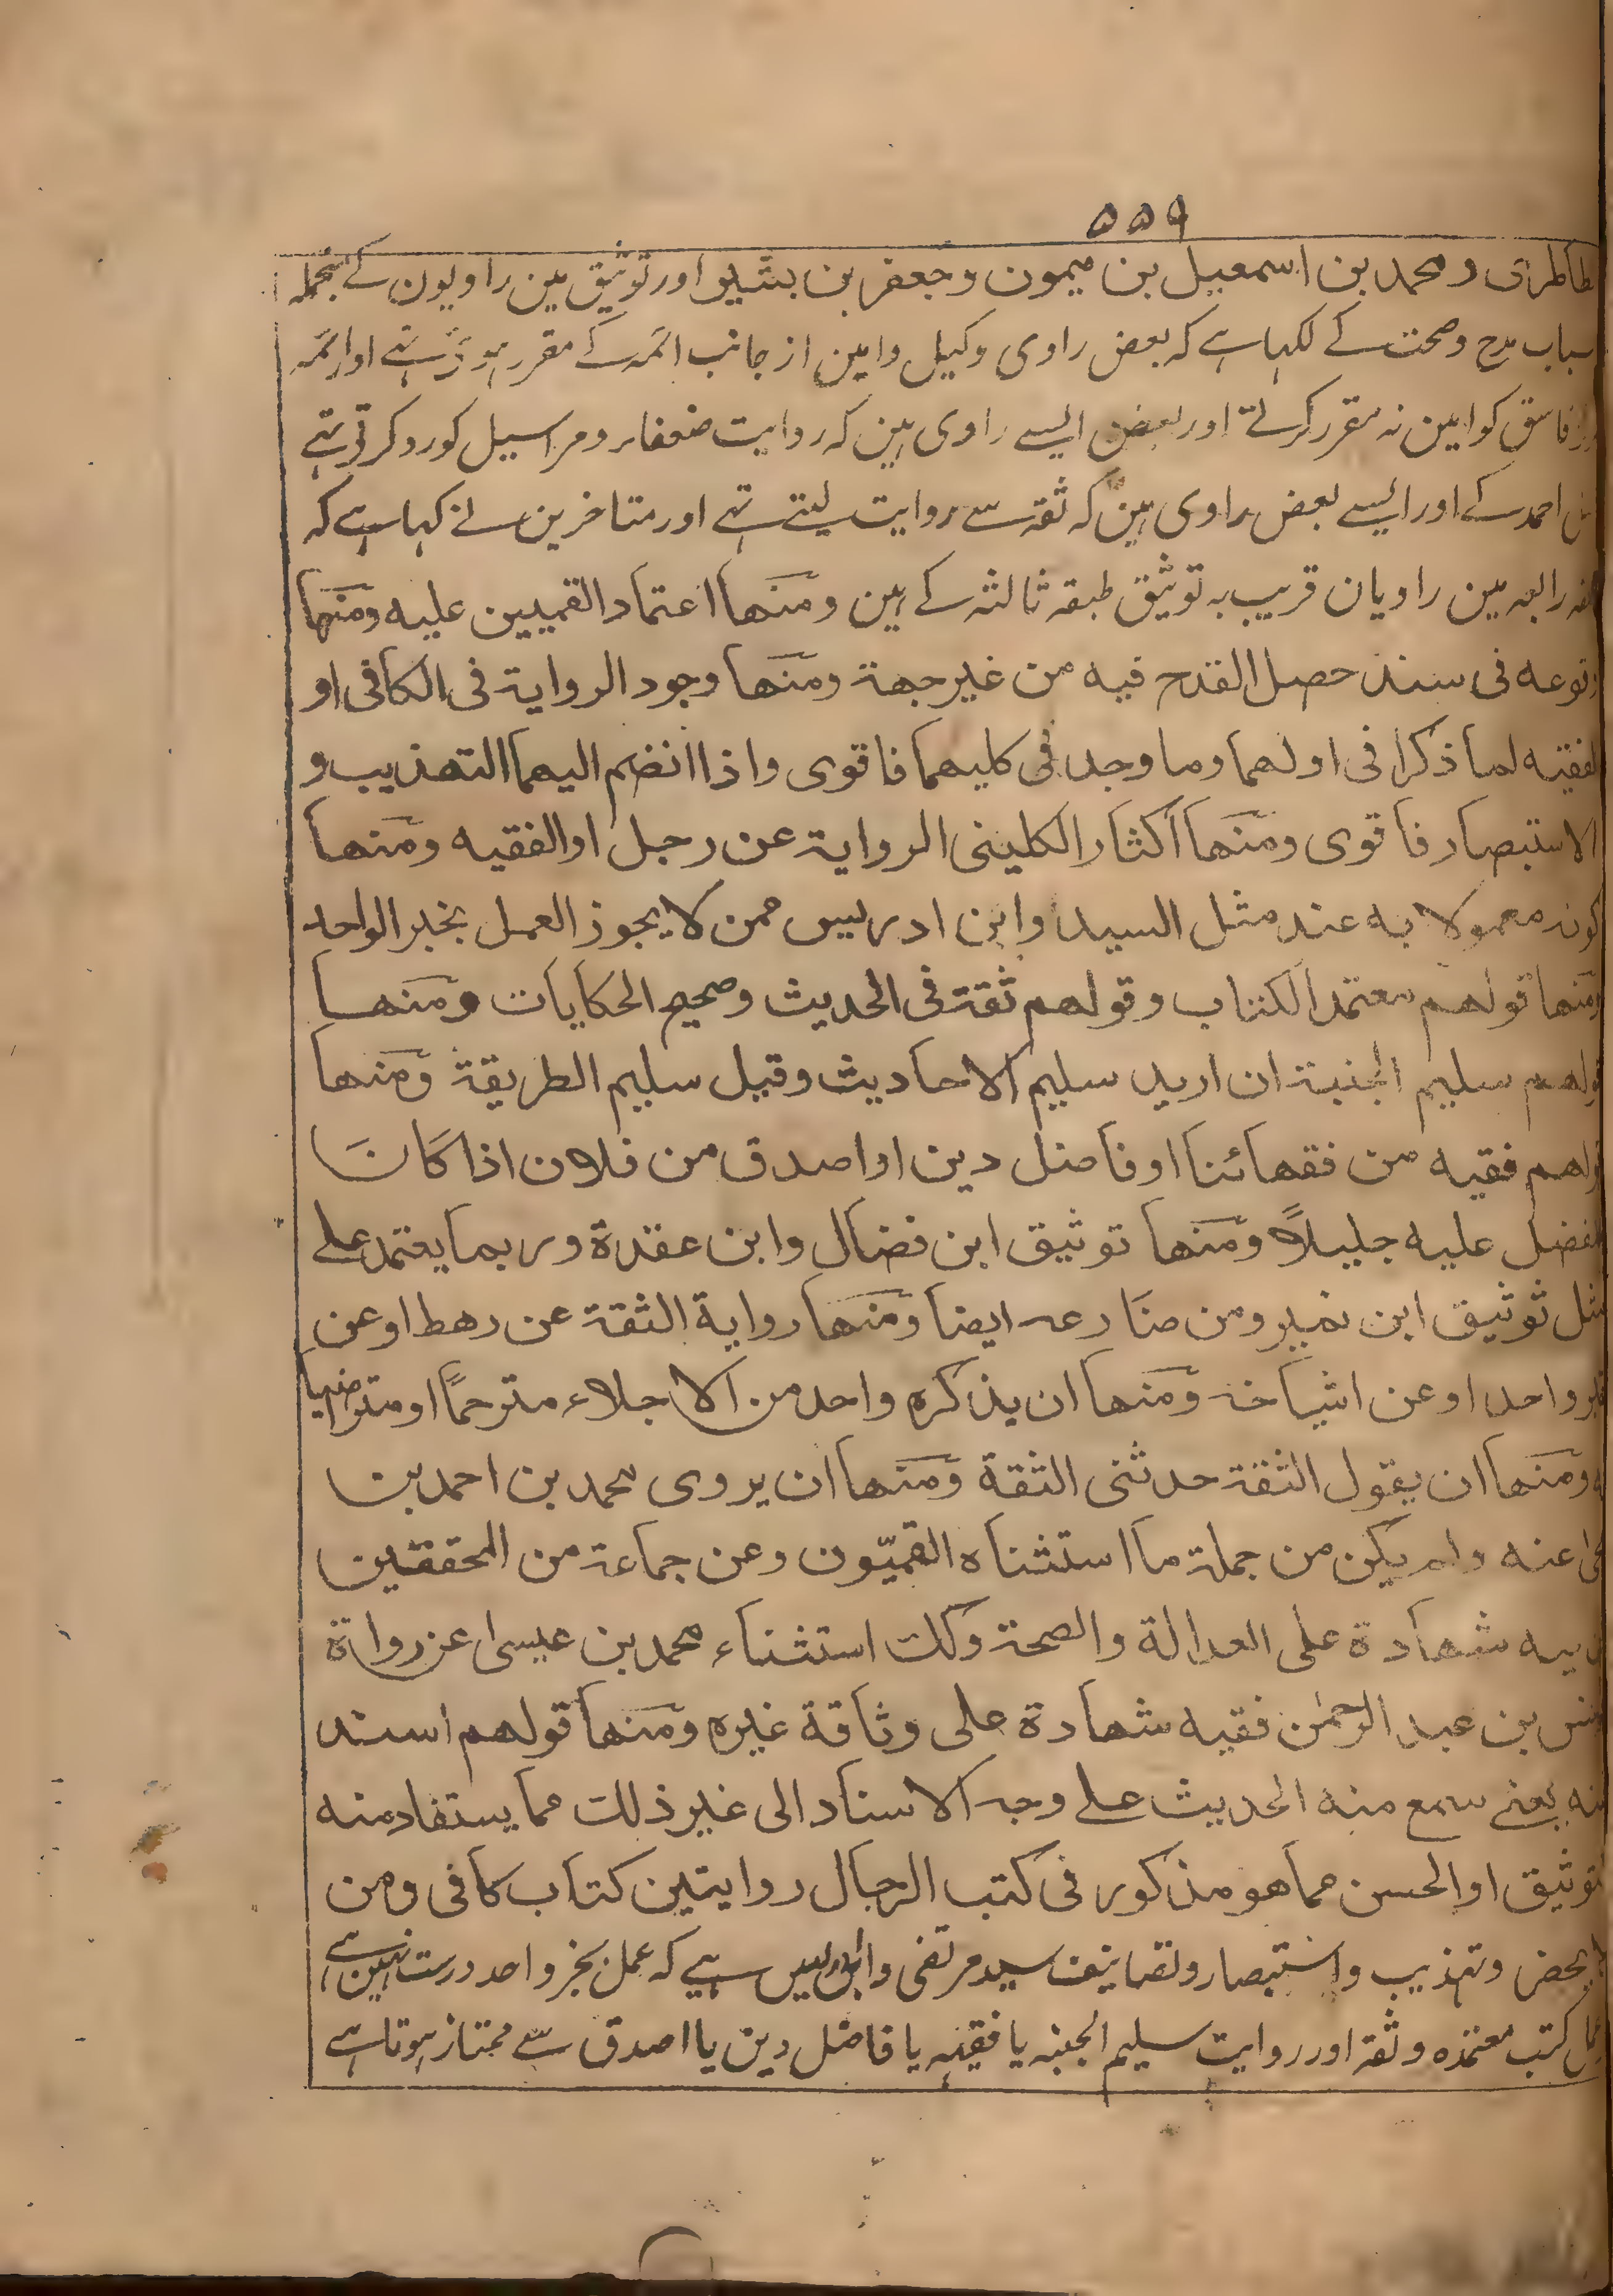 ۵۵۹
طاطری و محمد بن اسمعیل بن میمون و جعفر بن بشیر اور توثیق مین راویون کے منجملہ
سباب مدح و صحت کے لکہا ہے کہ بعض راوی وکیل و امین از جانب ائمہ کے مقرر ہوتے تہے اور ائمہ
فاسق کو امین نہ مقرر کرتے اور بعض ایسے راوی ہین کہ روایت ضعفاء و مراسیل کو رد کرتے تہے
احمد کے اور ایسے بعض راوی ہین کہ ثقہ سے روایت لیتے تہے اور متاخرین نے کہا ہے کہ
رابعہ مین راویان قریب بہ توثیق طبقہ ثالثہ کے ہین ومنها اعتماد القمیین علیه ومنها
وقوعه فی سند حصل القدح فیه من غیر جهة ومنها وجود الروایة فی الکافی او
لفقیه لما ذکرا فی اولهما وما وجد فی کلیهما فاقوی واذا انضم الیهما التهذیب و
الاستبصار فاقوی ومنها اکثار الکلینی الروایة عن رجل او الفقیه ومنها
کونه معمولا به عند مثل السید وابن ادریس ممن لا یجوز العمل بخبر الواحد
ومنها قولهم معتمد الکتاب وقولهم ثقة فی الحدیث وصحیح الحکایات ومنها
قولهم سلیم الجنبة ان ارید سلیم الاحادیث وقیل سلیم الطریقة ومنها
قولهم فقیه من فقهائنا او فاضل دین او اصدق من فلان اذا کان
لفضل علیه جلیلاً ومنها توثیق ابن فضال وابن عقدة وربما یعتمد علے
مثل توثیق ابن نمیر ومن ضارعه ایضا ومنها روایة الثقة عن رهط او عن
غیر واحد او عن اشیاخه ومنها ان یذکره واحد من الاجلاء مترحمًا او مترضیا
ومنها ان یقول الثقة حدثنی الثقة ومنها ان یروی محمد بن احمد بن
عنه ولم یکن من جملة ما استثناه القمیّون وعن جماعة من المحققین
فیه شهادة علی العدالة والصحة وکک استثناء محمد بن عیسی عن رواة
یونس بن عبد الرحمٰن ففیه شهادة علی وثاقة غیره ومنها قولهم اسند
عنه یعنے سمع منه الحدیث علے وجه الاسناد الی غیر ذلک مما یستفاد منه
توثیق او الحسن مما هو مذکور فی کتب الرجال روایتین کتاب کافی و من
یحضر و تہذیب و استبصار و تصانیف سید مرتضی و ابن ادریس سے ہے کہ عمل بخبر واحد درست نہین ہے
کتب معتمدہ و ثقہ اور روایت سلیم الجنبہ یا فقیہ یا فاضل دین یا اصدق سے ممتاز ہوتا ہے